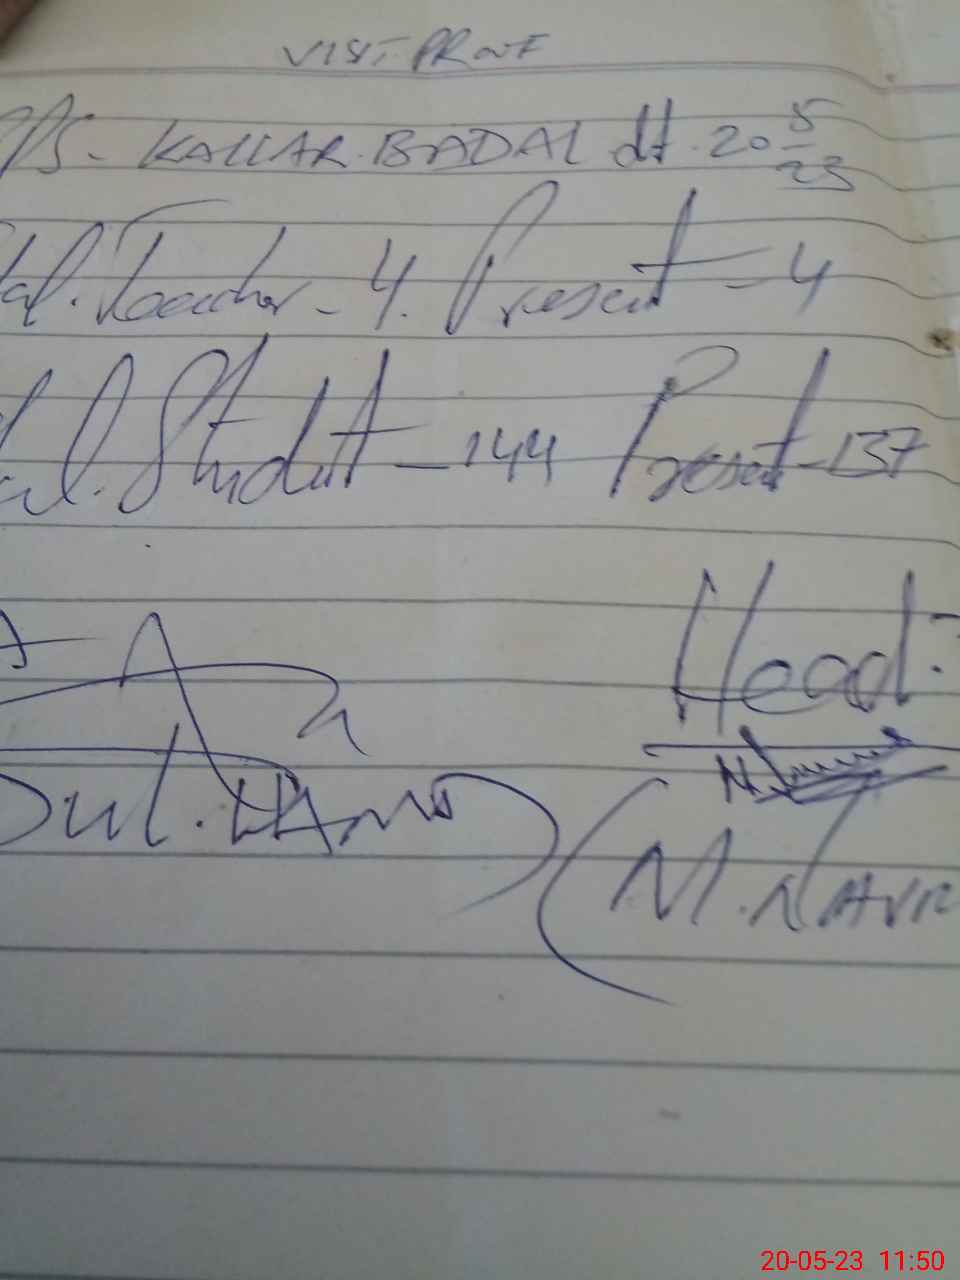 VISIT PROOF
PS - KALLAR.BADAL dt. 20 5/23
tal. Teacher - 4. Present - 4
tal. Student - 144 Present - 137
Head:
Sul.
(M. NAVR
20-05-23 11:50